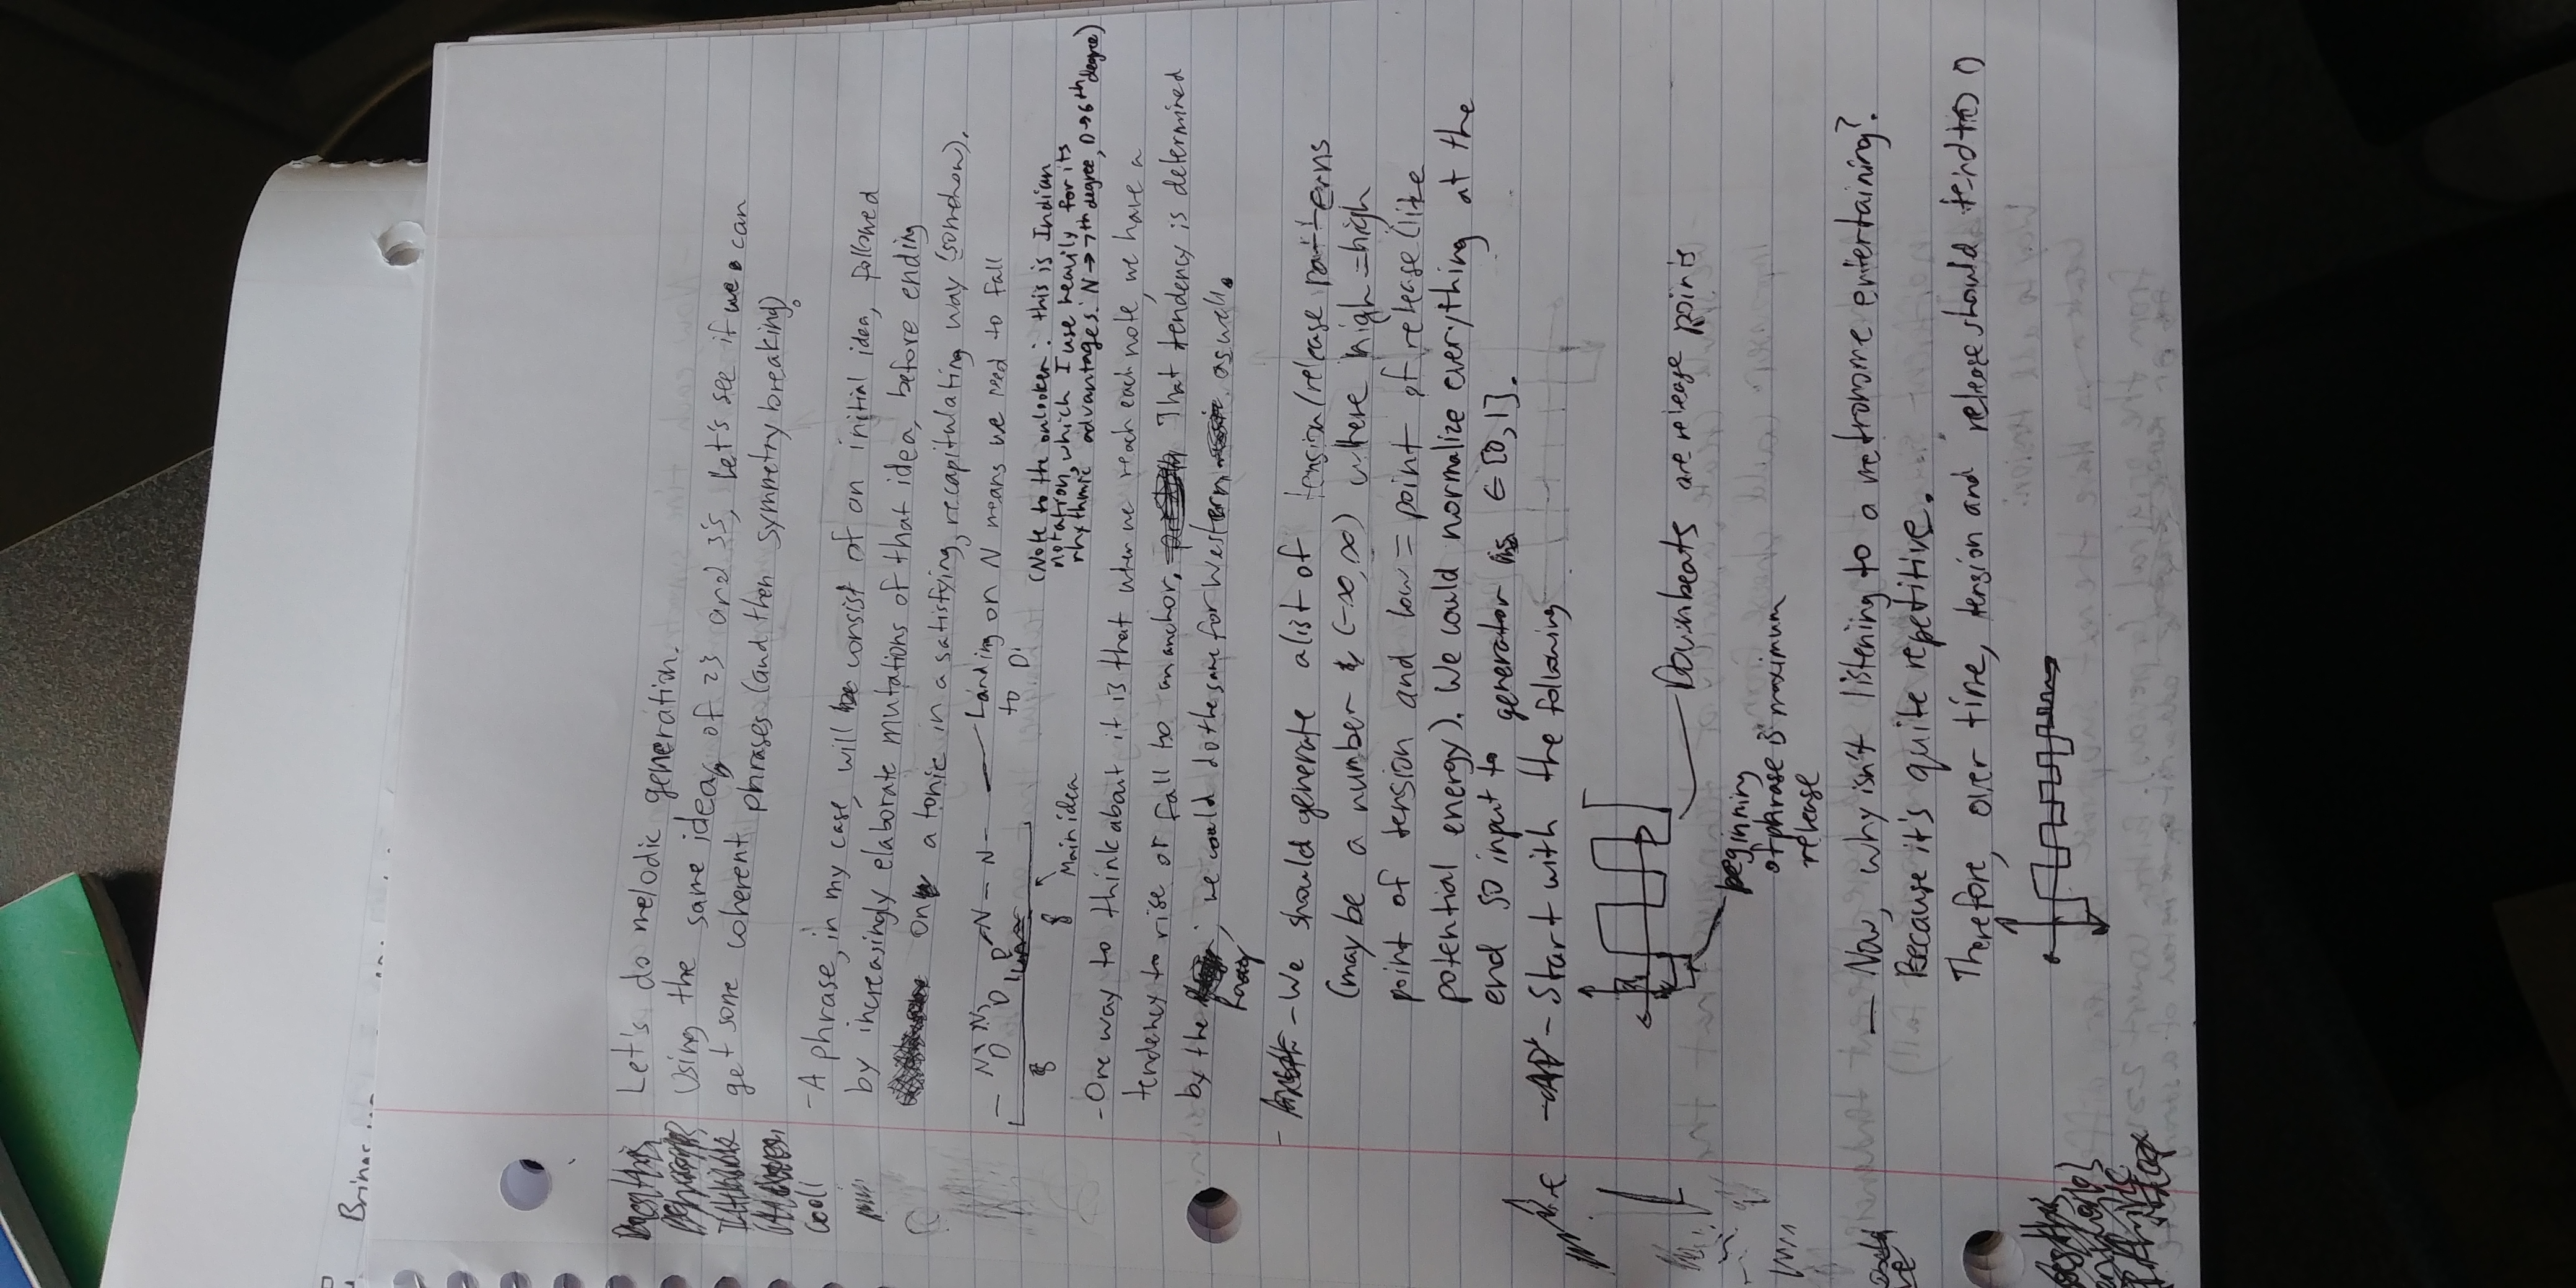 Brings
Let's do melodic generation.
Using the same idea of 2s and 3s, let's see if we can
get some coherent phrases (and then symmetry breaking).
cool!
- A phrase, in my case, will consist of an initial idea, followed
by increasingly elaborate mutations of that idea, before ending
on a tonic in a satisfying, recapitulating way (somehow).
N N N - N - — Landing on N means we need to fall
D D D
to D!
8 8 Main idea
(Note to the onlooker: this is Indian
notation, which I use heavily for its
rhythmic advantages: N → 7th degree, D → 6th degree)
- One way to think about it is that when we reach each note, we have a
tendency to rise or fall to an anchor. That tendency is determined
by the raag; we could do the same for Western as well.
- We should generate a list of tension/release patterns
(maybe a number ∈ (-∞, ∞) where high = high
point of tension and low = point of release (like
potential energy). We could normalize everything at the
end so input to generator is ∈ [0, 1].
- Start with the following
Downbeats are release points
beginning
of phrase is maximum
release
— Now, why isn't listening to a metronome entertaining?
Because it's quite repetitive.
Therefore, over time, tension and release should tend to 0